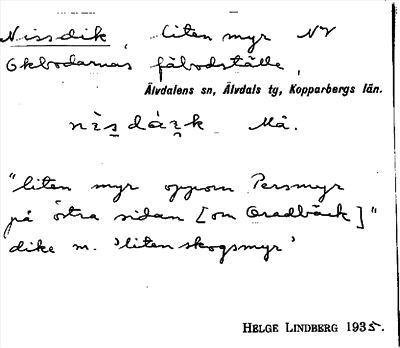 Nissdik, liten myr NV
Okbodarnas fäbodställe,
Älvdalens sn, Älvdals tg, Kopparbergs län.
nìs̠dáɪ̯k Må.
"liten myr oppom Persmyr
på östra sidan [om Oradbäck]"
dike m. 'liten skogsmyr'
HELGE LINDBERG 1935.